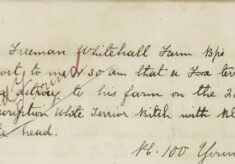 Freeman Whitehall Farm
ort to me 9.30 am that a Fox ter
to his farm on the 2
cription White Terrier Bitch with Bl
head.
Pc. 100 Youn